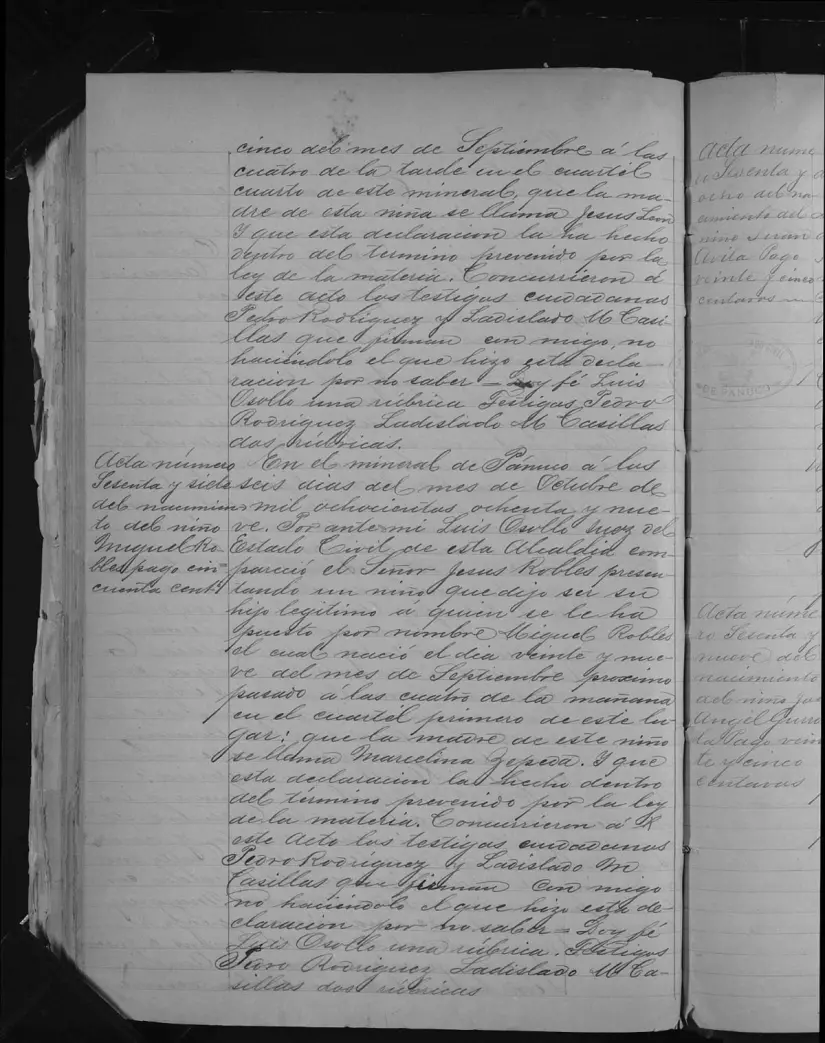 cinco del mes de Septiembre á las
cuatro de la tarde en el cuartél
cuarto de este mineral, que la ma-
dre de esta niña se llama Jesus Leon
Y que esta declaracion la ha hecho
dentro del termino prevenido por la
ley de la materia. Concurrieron á
este acto los testigos ciudadanos
Pedro Rodriguez y Ladislado M Casi-
llas que firman con migo, no
haciendolo el que hizo esta decla-
racion por no saber = Doy fé Luis
Osollo una rúbrica Testigos Pedro
Rodriguez Ladislado M Casillas
dos rúbricas.
Acta número
Sesenta y siete
del nacimien
to del niño
Miguel Ro-
bles pago cin-
cuenta cent.
En el mineral de Pánuco á los
seis dias del mes de Octubre de
mil ochocientos ochenta y nue-
ve. Por ante mi Luis Osollo Juez del
Estado Civil de esta Alcaldia com-
pareció el Señor Jesus Robles presen-
tando un niño que dijo ser su
hijo legitimo á quien se le ha
puesto por nombre Miguel Robles
el cual nació el dia veinte y nue-
ve del mes de Septiembre proximo
pasado á las cuatro de la mañana
en el cuartél primero de este lu-
gar: que la madre de este niño
se llama Marcelina Zepeda. Y que
esta declaracion la hecho dentro
del término prevenido por la ley
de la materia. Concurrieron á
este acto los testigos ciudadanos
Pedro Rodriguez y Ladislado M
Casillas que firman con migo
no haciendolo el que hizo esta de-
claracion por no saber = Doy fé
Luis Osollo una rúbrica. Testigos
Pedro Rodriguez Ladislado M Ca-
sillas dos rúbricas
Acta núme
ro Sesenta y
ocho del na-
cimiento del
niño
Avila Pago
veinte y cinco
centavos
DE PANUCO
Acta núme
ro Sesenta y
nueve del
nacimiento
del niño
Angel
ta Pago vein
te y cinco
centavos